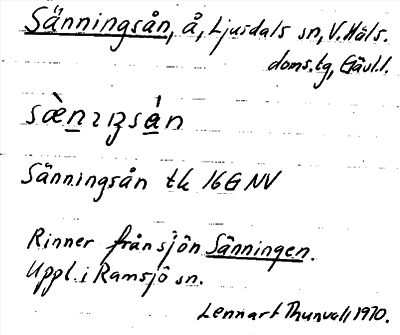 Sänningsån, å, Ljusdals sn, V. Häls.
doms.tg, Gävl.l.
sæ̀nıŋsán
Sänningsån tk 16G NV
Rinner från sjön Sänningen.
Uppl. i Ramsjö sn.
Lennart Thunvall 1970.